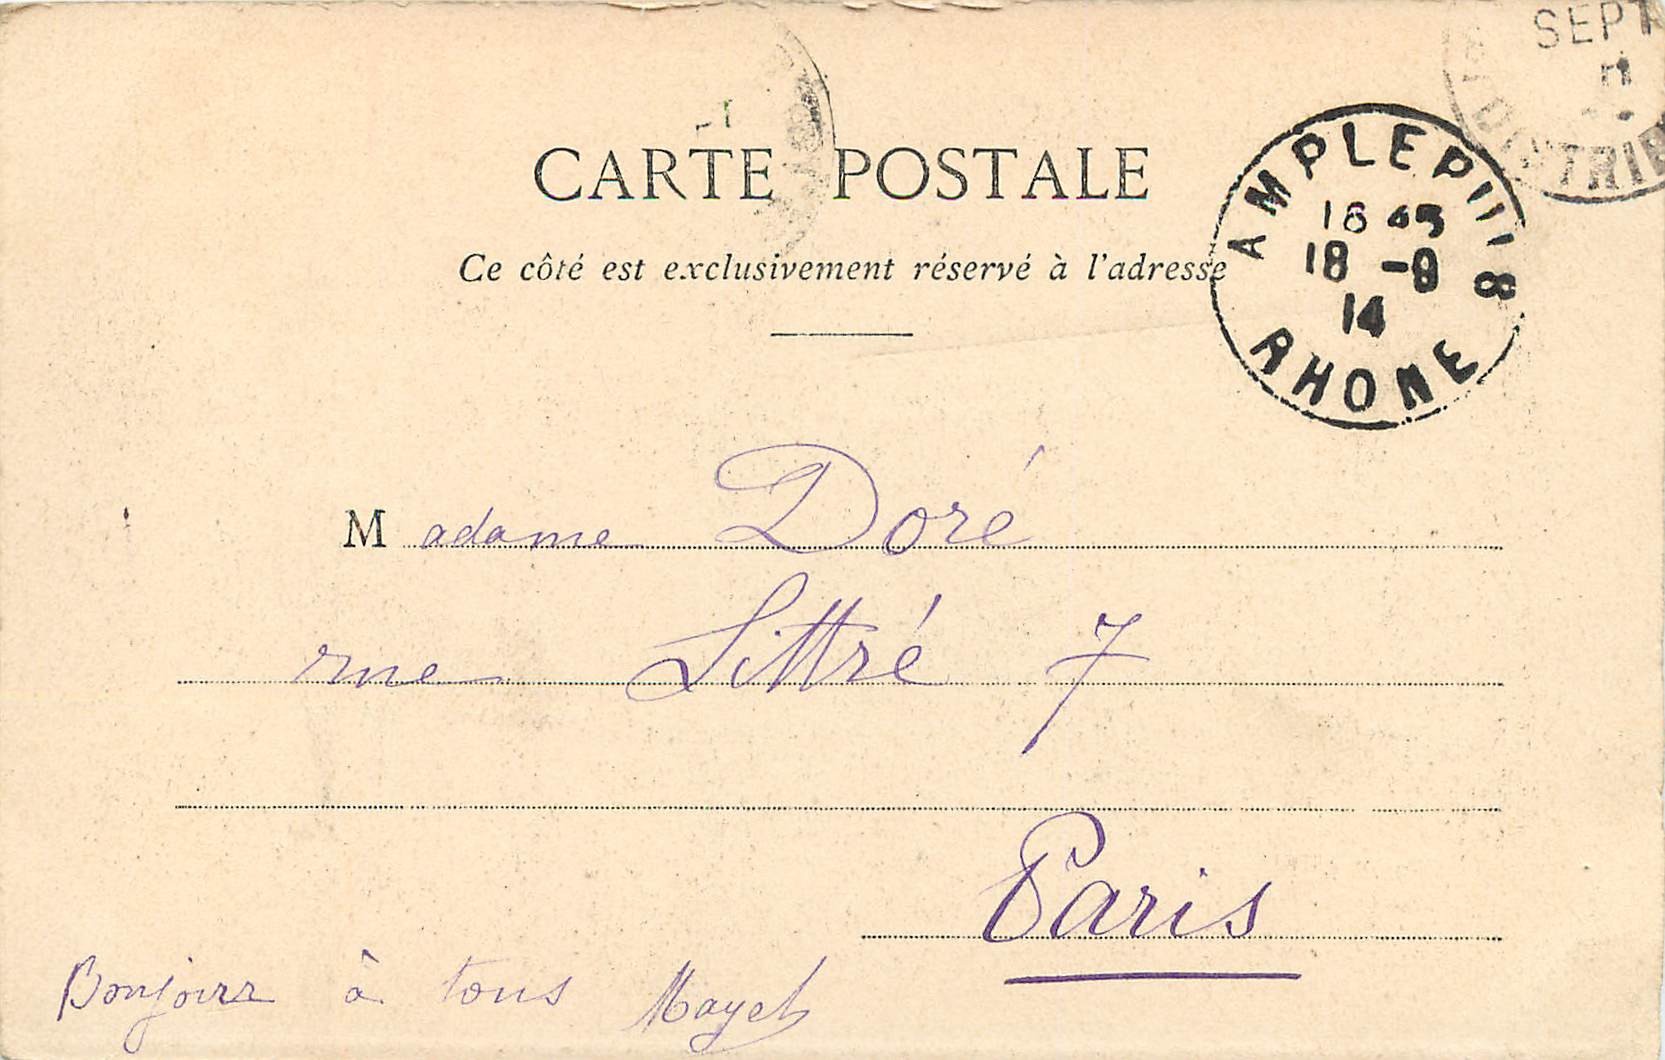 SEPT
DISTRIB
CARTE POSTALE
Ce côté est exclusivement réservé à l'adresse
AMPLEPUIS
18 -9
14
RHONE
Madame Doré
rue Littré 7
Paris
Bonjour à tous Mayet